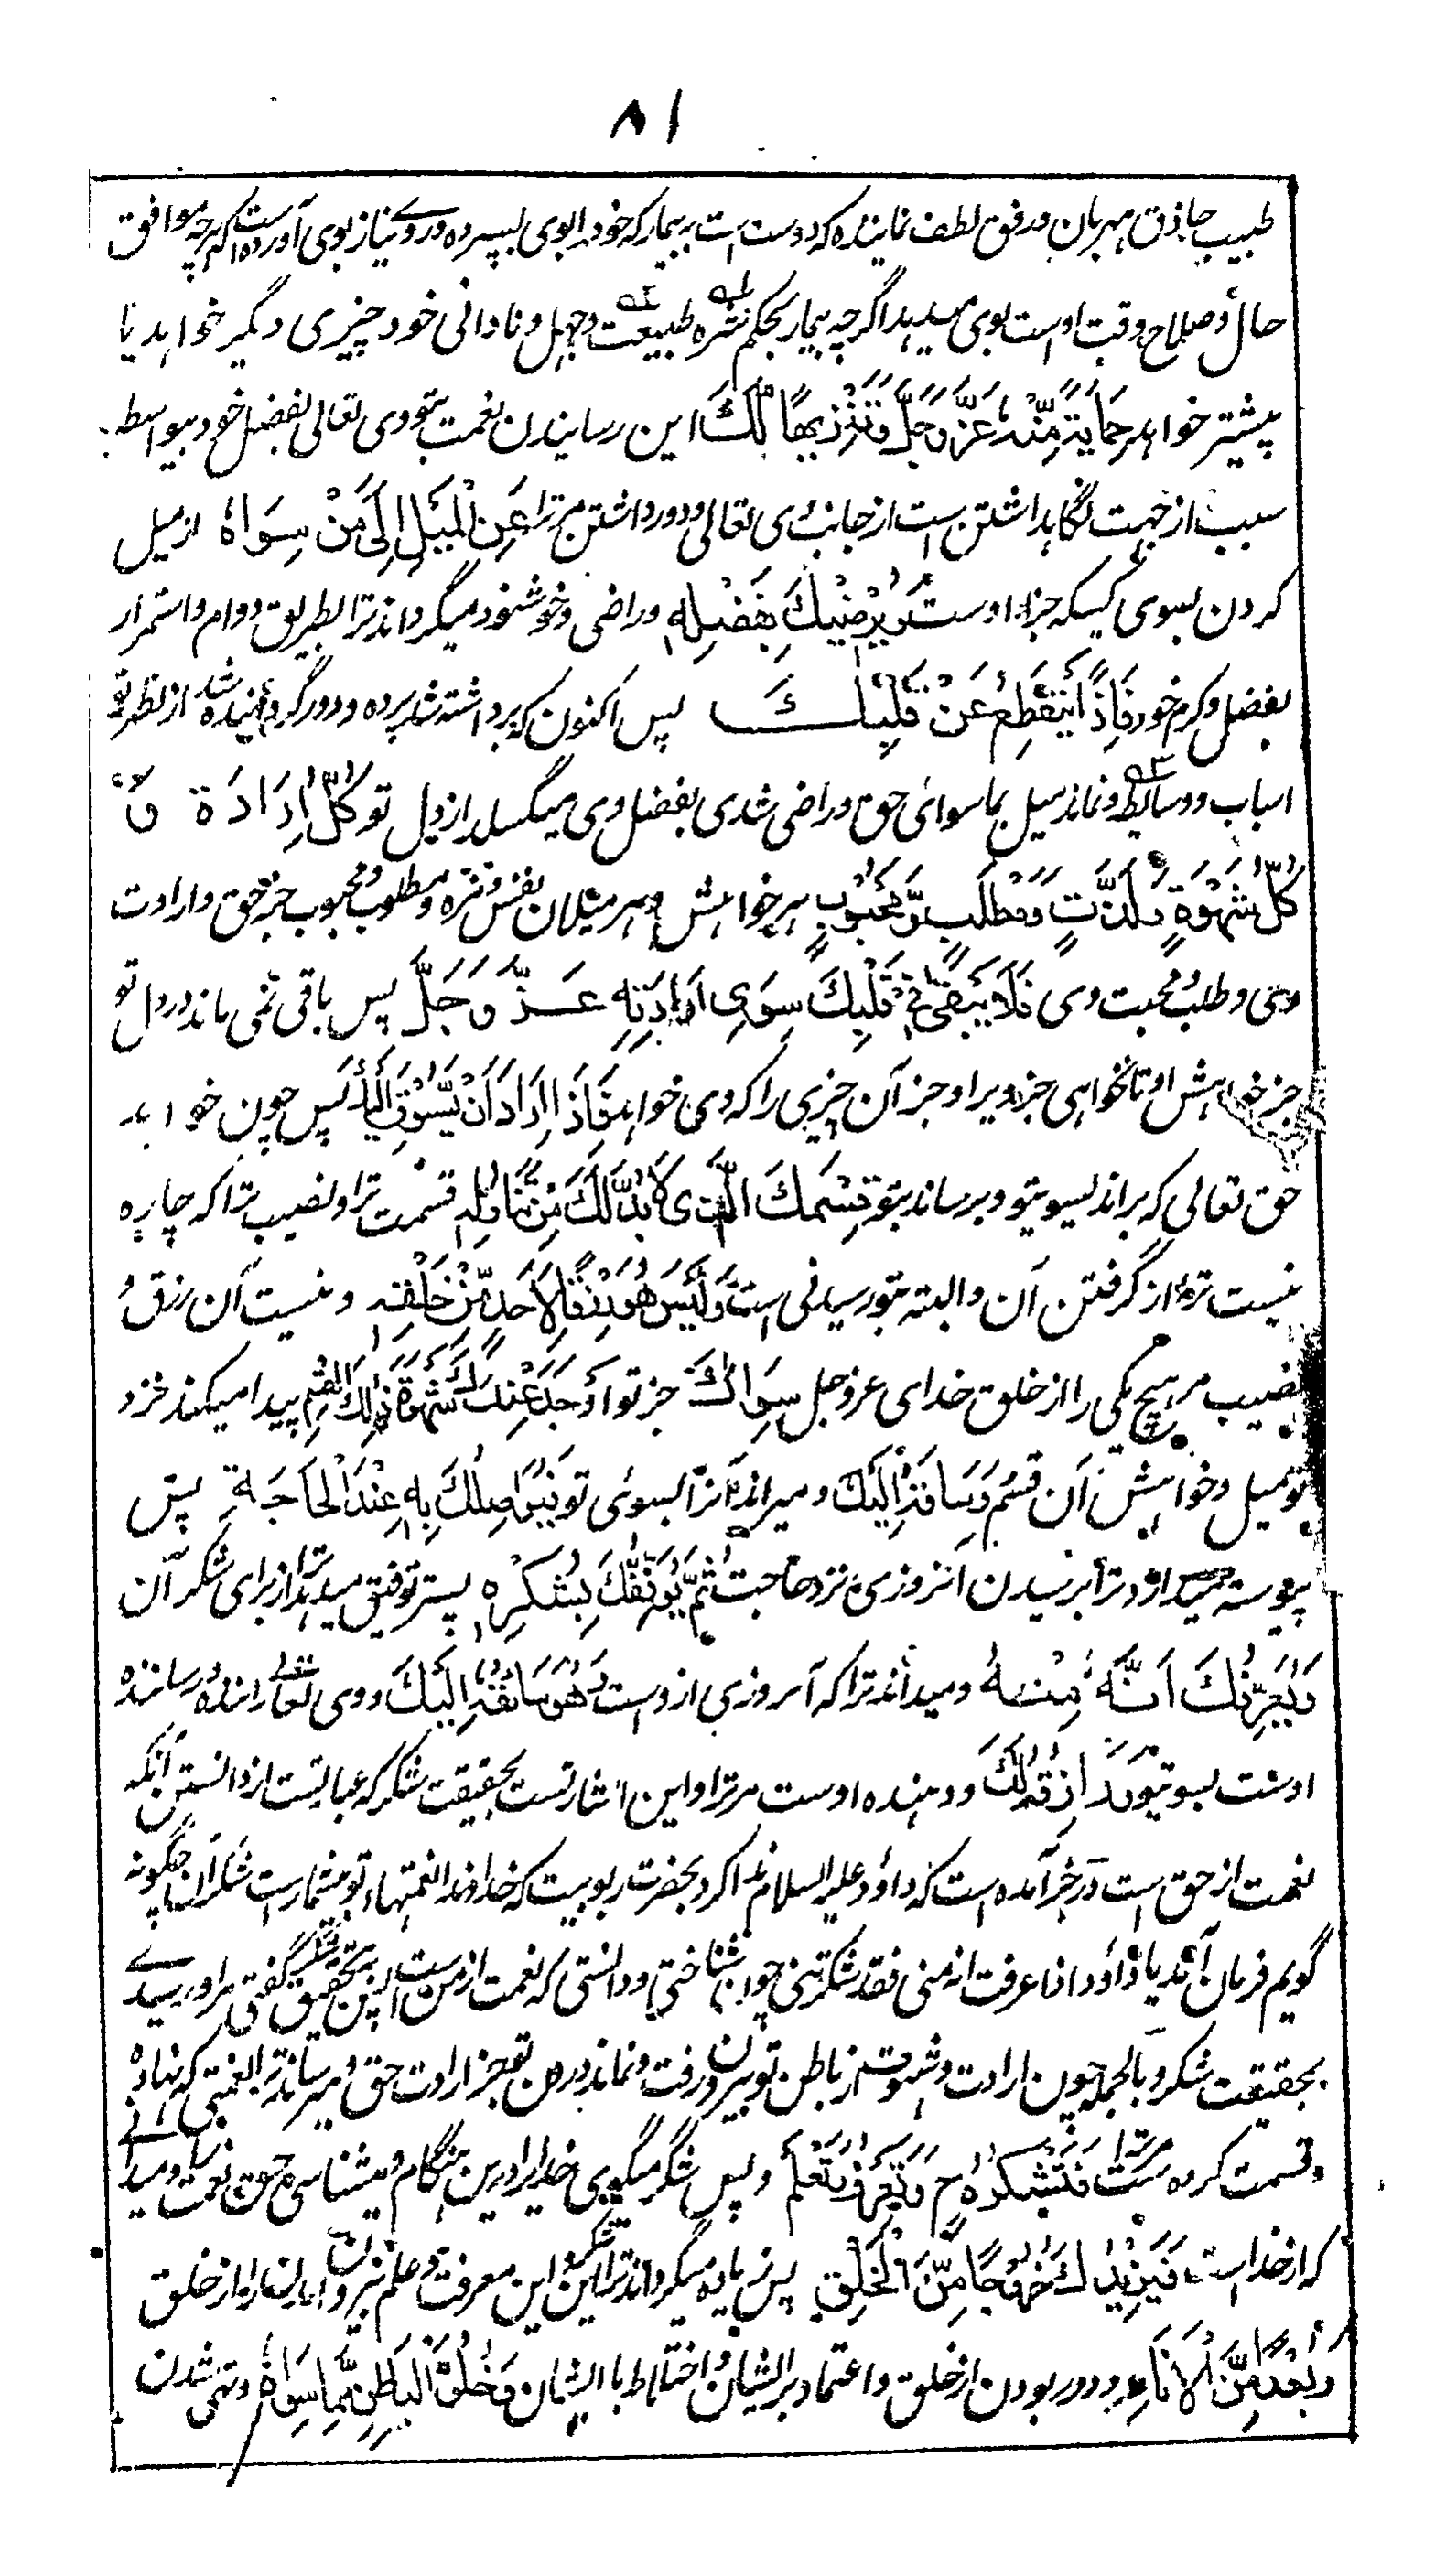 ۸۱
طبیب حاذق مهربان و رفق لطف نماینده که دوست است بر بیمار که خود را بوی بسپرده و روی نیاز بوی آورده است که هر چه موافق
حال و صلاح وقت اوست بوی میدهد اگرچه بیمار بحکم شره طبیعت و جهل و نادانی خود چیزی دیگر خواهد یا
پیشتر خواهد حِمَايَةً مِّنْهُ عَزَّ وَجَلَّ وَتَنْزِيهًا لَّكَ این رسانیدن نعمت بتو وی تعالی بفضل خود بیواسطه
سبب از جهت نگاهداشتن ست از جانب وی تعالی و دور داشتن مر ترا عَنِ الْمَيْلِ اِلٰى مَنْ سِوَاهُ از میل
کردن بسوی کسیکه جز اوست وَيُرْضِيْكَ بِفَضْلِهٖ و راضی و خوشنود میگرداند ترا بطریق دوام و استمرار
بفضل و کرم خود فَاِذًا يَنْقَطِعُ عَنْ قَلْبِكَ پس اکنون که برداشته شد پرده و دور گردانیده شد از نظر تو
اسباب و وسایط و نماند میل بما سوای حق و راضی شدی بفضل وی میگسلد از دل تو كُلُّ اِرَادَةٍ وَّ
كُلُّ شَهْوَةٍ وَّلَذَّتٍ وَّمَطْلَبٍ وَّمَحْبُوْبٍ هر خواهش و هر میلان نفس و شره و مطلوب و محبوب جز حق و ارادت
وی و طلب و محبت وی فَلَا يَبْقٰى فِيْ قَلْبِكَ سِوٰى اِرَادَتِهٖ عَزَّ وَجَلَّ پس باقی نمی ماند در دل تو
جز خواهش او تا نخواهی جز ویرا و جز آن چیزی را که وی خواهد فَاِذَا اَرَادَ اَنْ يَّسُوْقَ اِلَيْكَ پس چون خواهد
حق تعالی که براند بسوی تو و برساند بتو قِسْمَكَ الَّذِيْ لَا بُدَّ لَكَ مِنْ تَنَاوُلِهٖ قسمت ترا و نصیب ترا که چاره
نیست ترا از گرفتن آن و البته بتو رسیدنی است وَلَيْسَ هُوَ رِزْقًا لِاَحَدٍ مِّنْ خَلْقِهٖ و نیست آن رزق و
نصیب مر هیچ یکی را از خلق خدای عز و جل سِوَاكَ جز تو اَوْجَدَ عِنْدَكَ شَهْوَةَ ذٰلِكَ الْقِسْمِ پیدا میکند نزد
تو میل و خواهش آن قسم وَسَاقَهُ اِلَيْكَ و میراند آنرا بسوی تو فَيُوَاصِلُكَ بِهٖ عِنْدَ الْحَاجَةِ پس
پیوسته میدارد ترا برسیدن آنروزی نزد حاجت ثُمَّ يُوَفِّقُكَ بِشُكْرِهٖ پستر توفیق میدهد ترا از برای شکر آن
وَيُعَرِّفُكَ اَنَّهُ مِنْهُ و میداند ترا که آن روزی ازوست وَهُوَ سَائِقُهُ اِلَيْكَ و وی تعالی راننده و رساننده
اوست بسوی تو وَرَازِقُهُ لَكَ و دهنده اوست مر ترا و این اشارتست بحقیقت شکر که عبارتست از دانستن آنکه
نعمت از حق است در خبر آمده است که داود علیه السلام ندا کرد بحضرت ربوبیت که خداوندا نعمتهای تو بیشمارست شکر آن چگونه
گویم فرمان آمد یا داود اذا عرفت انه منی فقد شکرتنی چون شناختی و دانستی که نعمت از من ست پس بتحقیق شکر گفتی مرا و رسیدے
بحقیقت شکر و بالجمله چون ارادت و شهوت از باطن تو بیرون رفت و نماند در وی جز ارادت حق و میرساند ترا نعمتی که نهاده
و قسمت کرده ست ترا فَتَشْكُرُهُ ح وَتَعْرِفُ وَتَعْلَمُ و پس شکر میگوئی خدا را درین هنگام و میشناسی حق نعمت را و میدانے
که از خداست فَيَزِيْدُكَ خُرُوْجًا مِّنَ الْخَلْقِ پس زیاده میگرداند ترا این شکر و این معرفت و علم بیرون آمدن را از خلق
وَبُعْدًا مِّنَ الْاَنَامِ و دور بودن از خلق و اعتماد بر ایشان و اختلاط با ایشان وَخُلُوَّ الْبَاطِنِ مِمَّا سِوَاهُ و تهی شدن